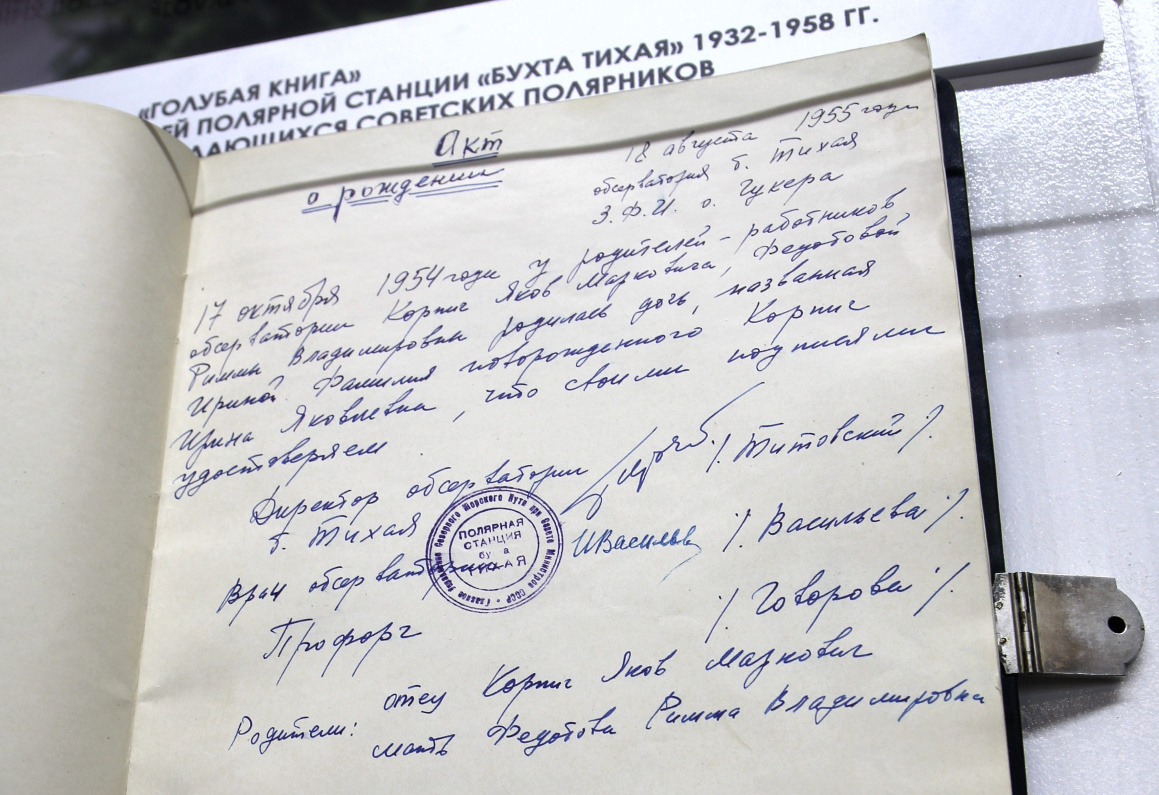 «ГОЛУБАЯ КНИГА»
ЕЙ ПОЛЯРНОЙ СТАНЦИИ «БУХТА ТИХАЯ» 1932-1958 ГГ.
ЛАЮЩИХСЯ СОВЕТСКИХ ПОЛЯРНИКОВ
Акт
о рождении
18 августа 1955 года
обсерватория б. Тихая
З.Ф.И. о. Гукера
17 октября 1954 года у родителей - работников
обсерватории Корпис Яков Марковича, Федотовой
Риммы Владимировны родилась дочь, названная
Ириной. Фамилия новорожденного Корпис
Ирина Яковлевна, что своими подписями
удостоверяем.
Директор обсерватории /Титовский/.
б. Тихая
Врач обсерватории ИВасильев /Васильева/.
Профорг /Говорова/.
Родители: отец Корпис Яков Маркович
мать Федотова Римма Владимировна
Главное Управление Северного Морского Пути при Совете Министров СССР
ПОЛЯРНАЯ
СТАНЦИЯ
бу а
ТИХАЯ